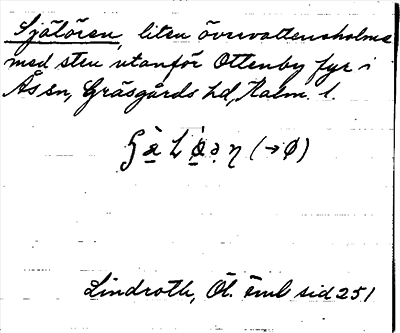 Själören, liten övervattensholme
med sten utanför Ottenby fyr i
Ås sn, Gräsgårds hd, Kalm. l.
(→ø)
Lindroth, Öl. önb sid 251